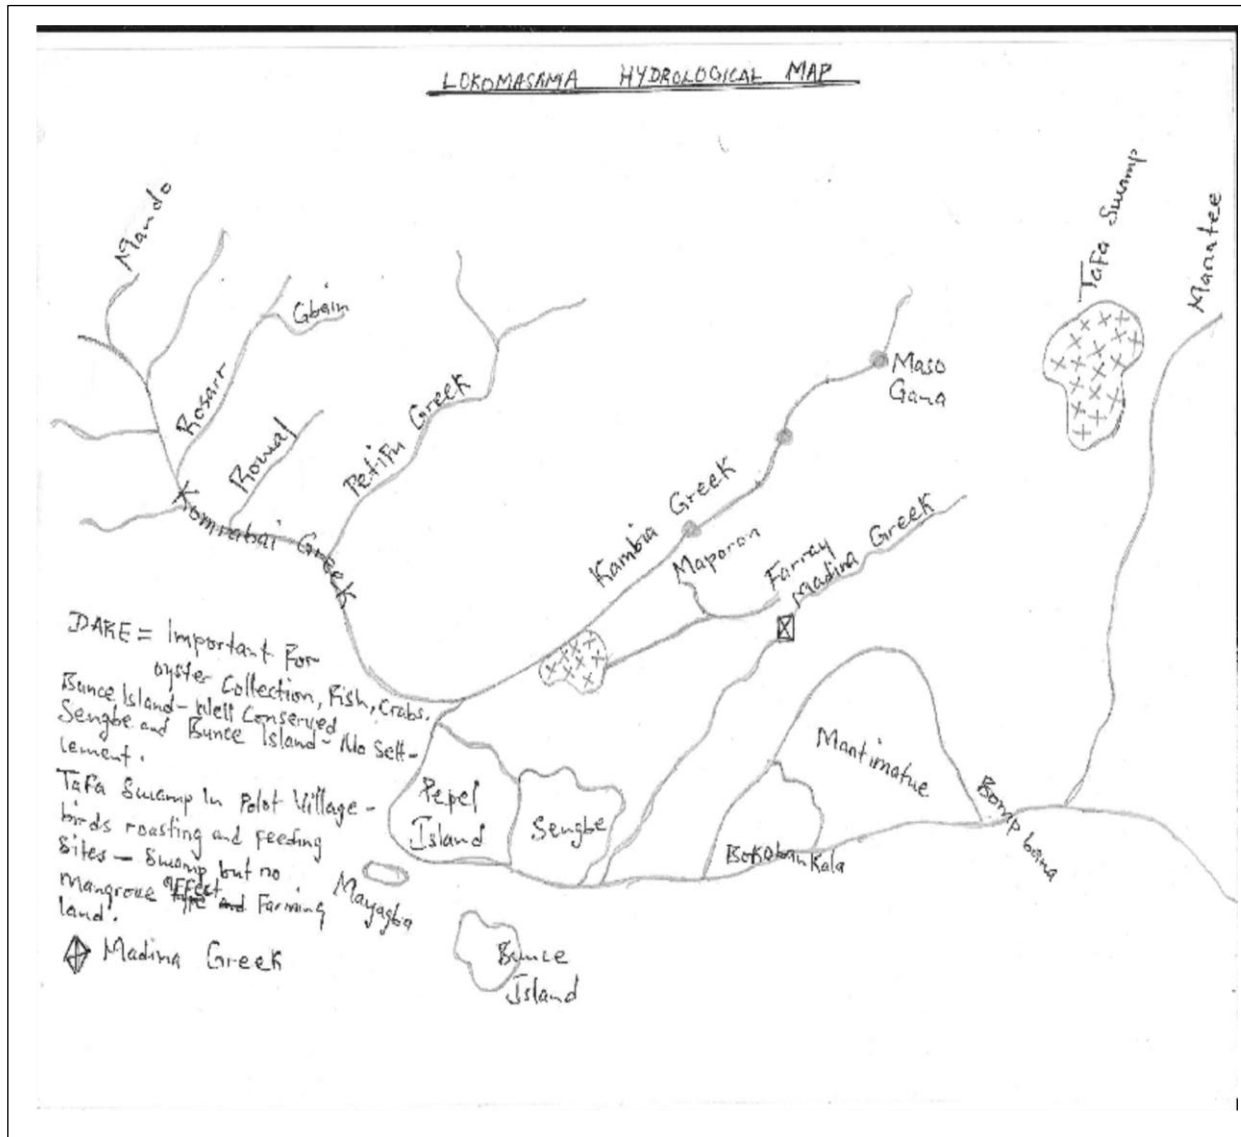 LOKOMASAMA HYDROLOGICAL MAP
Mando
Gbain
Rosarr
Rowal
Petifu Greek
Komrabai Greek
Kambia Greek
Maso
Gana
Tafa Swamp
Manatee
Maporon
Farray
Madina Greek
Mantimatue
Bomp boima
Bokobankala
Pepel
Island
Sengbe
Mayagba
Bunce
Island
DARE = Important For
oyster Collection, Fish, Crabs.
Bunce Island - Well Conserved
Sengbe and Bunce Island - No Sett-
lement.
Tafa Swamp In Polot Village -
birds roasting and feeding
Sites - Swamp but no
Mangrove effect and Farming
land.
Madina Greek